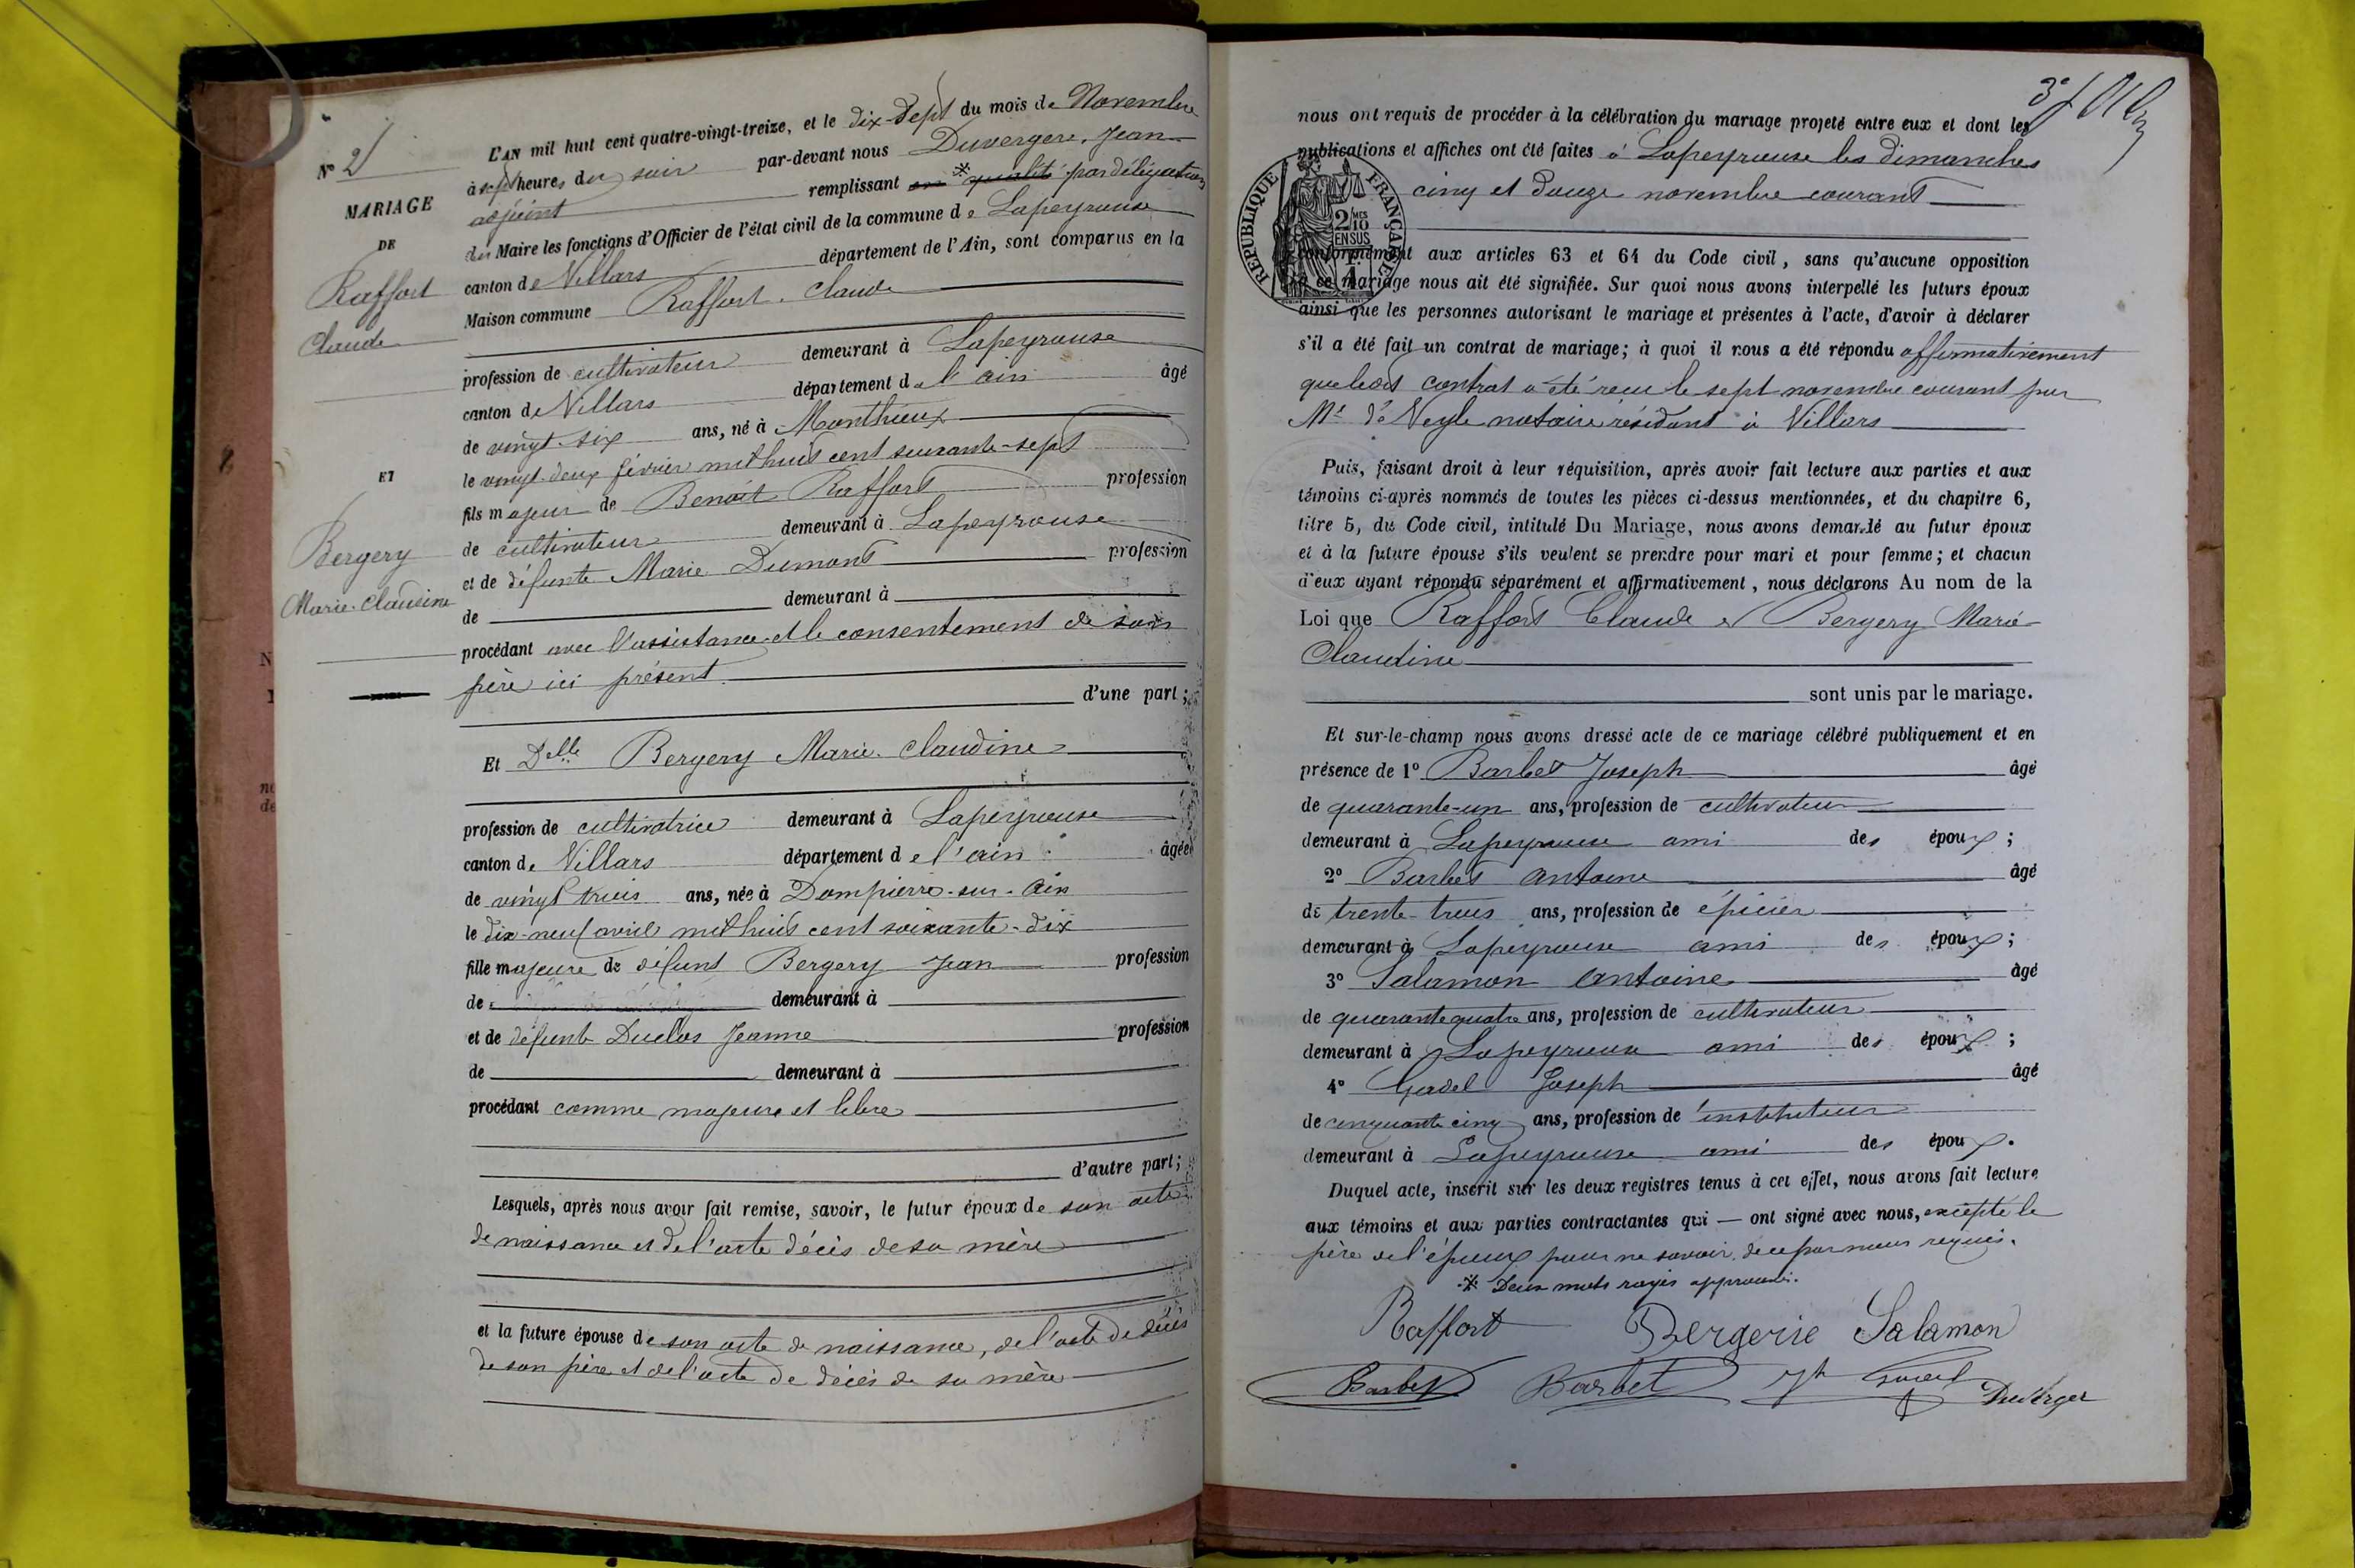 N° 2
MARIAGE
DE
Raffort
Claude
ET
Bergery
Marie-Claudine
L'AN mil huit cent quatre-vingt-treize, et le dix-sept du mois de Novembre
à sept heures du soir par-devant nous Duvergere, Jean
adjoint remplissant en * qualité par délégation
du Maire les fonctions d'Officier de l'état civil de la commune de Lapeyrouse
canton de Villars département de l'Ain, sont comparus en la
Maison commune Raffort, Claude
profession de cultivateur demeurant à Lapeyrouse
canton de Villars département de l'ain âgé
de vingt-six ans, né à Monthieux
le vingt-deux février mil huit cent soixante-sept
fils majeur de Benoît Raffort profession
de cultivateur demeurant à Lapeyrouse
et de défunte Marie Dumont profession
de demeurant à
procédant avec l'assistance et le consentement de son
père ici présent
d'une part;
Et Delle Bergery Marie-Claudine
profession de cultivatrice demeurant à Lapeyrouse
canton de Villars département de l'ain âgée
de vingt trois ans, née à Dompierre-sur-Ain
le dix-neuf avril mil huit cent soixante-dix
fille majeure de défunt Bergery Jean profession
de demeurant à
et de défunte Duclos Jeanne profession
de demeurant à
procédant comme majeure et libre
d'autre part;
Lesquels, après nous avoir fait remise, savoir, le futur époux de son acte
de naissance et de l'acte décès de sa mère
et la future épouse de son acte de naissance, de l'acte de décès
de son père et de l'acte de décès de sa mère
3e f
nous ont requis de procéder à la célébration du mariage projeté entre eux et dont les
publications et affiches ont été faites à Lapeyrouse les dimanches
cinq et douze novembre courant
RÉPUBLIQUE FRANÇAISE
2/10 MES
EN SUS
conformément aux articles 63 et 64 du Code civil, sans qu'aucune opposition
à ce mariage nous ait été signifiée. Sur quoi nous avons interpellé les futurs époux
ainsi que les personnes autorisant le mariage et présentes à l'acte, d'avoir à déclarer
s'il a été fait un contrat de mariage; à quoi il nous a été répondu affirmativement
que ledit contrat a été reçu le sept novembre courant par
Me de Veyle notaire résidant à Villars
Puis, faisant droit à leur réquisition, après avoir fait lecture aux parties et aux
témoins ci-après nommés de toutes les pièces ci-dessus mentionnées, et du chapitre 6,
titre 5, du Code civil, intitulé Du Mariage, nous avons demandé au futur époux
et à la future épouse s'ils veulent se prendre pour mari et pour femme; et chacun
d'eux ayant répondu séparément et affirmativement, nous déclarons Au nom de la
Loi que Raffort Claude et Bergery Marie-
Claudine
sont unis par le mariage.
Et sur-le-champ nous avons dressé acte de ce mariage célébré publiquement et en
présence de 1° Barbet Joseph âgé
de quarante-un ans, profession de cultivateur
demeurant à Lapeyrouse ami des époux;
2° Barbet Antoine âgé
de trente-trois ans, profession de épicier
demeurant à Lapeyrouse ami des époux;
3° Salamon Antoine âgé
de quarante quatre ans, profession de cultivateur
demeurant à Lapeyrouse ami des époux;
4° Joseph âgé
de cinquante cinq ans, profession de instituteur
demeurant à Lapeyrouse ami des époux.
Duquel acte, inscrit sur les deux registres tenus à cet effet, nous avons fait lecture
aux témoins et aux parties contractantes qui — ont signé avec nous, excepté le
père de l'époux pour ne savoir, de ce par nous requis.
* Deux mots rayés approuvés.
Raffort Bergerie Salamon
Barbet Barbet Jh Duverger